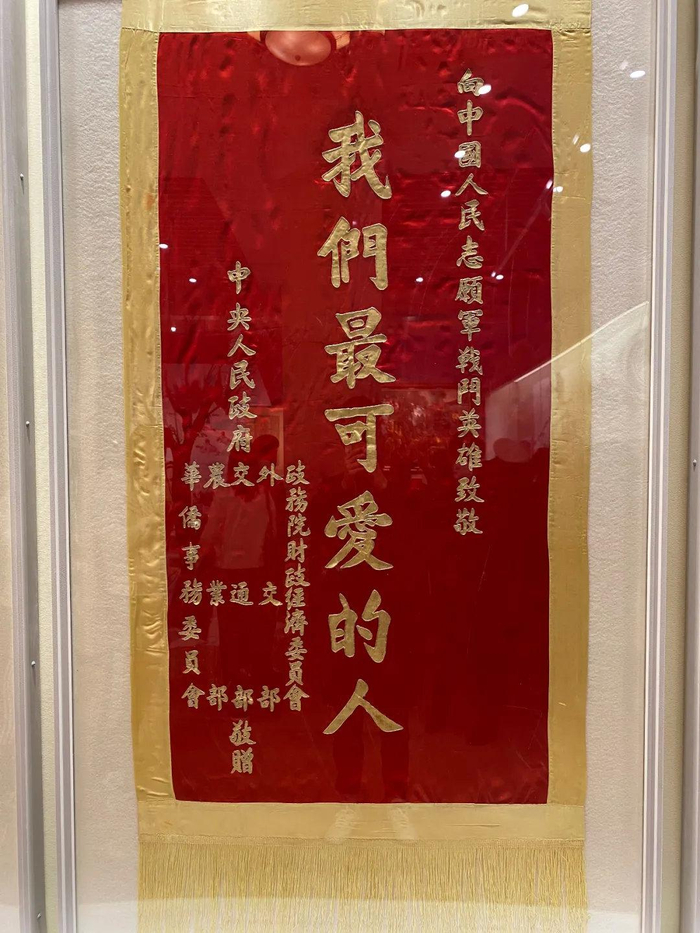 向中國人民志願軍戰鬥英雄致敬
我們最可愛的人
中央人民政府
政務院財政經濟委員會
外交部
交通部
農業部
華僑事務委員會
敬贈